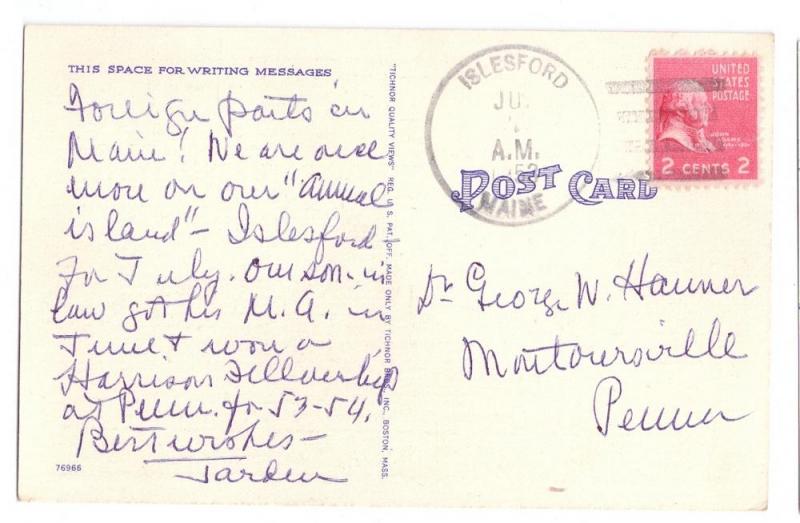 THIS SPACE FOR WRITING MESSAGES
Foreign parts in
Maine! We are once
more on our "annual
island" - Islesford
for July. Our son-in
law got his M.A. in
June & won a
Harrison Fellowship
at Penn. for 53-54.
Best wishes -
Jarden
76966
"TICHNOR QUALITY VIEWS" REG. U. S. PAT. OFF. MADE ONLY BY TICHNOR BROS., INC., BOSTON, MASS.
ISLESFORD
JUL
A.M.
MAINE
UNITED
STATES
POSTAGE
JOHN
ADAMS
2 CENTS 2
POST CARD
Dr George W. Hanner
Montoursville
Penna